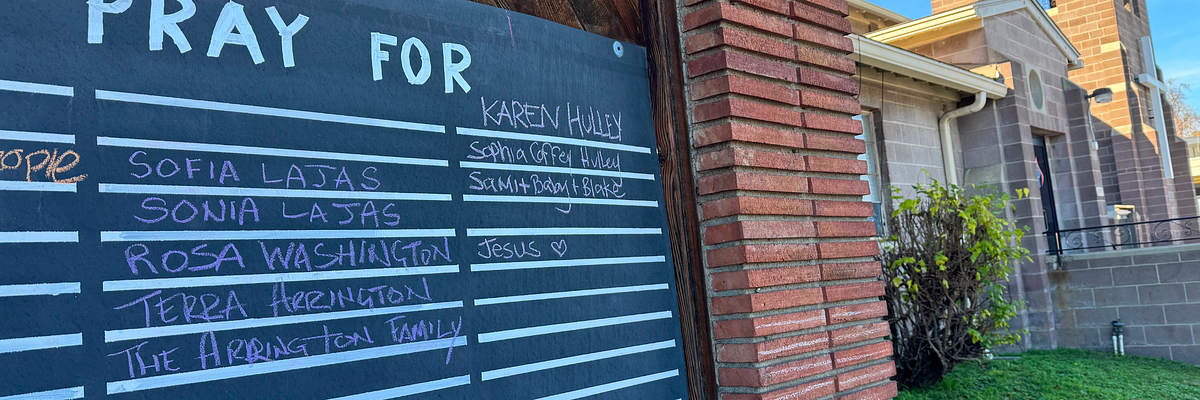 PRAY FOR
SOFIA LAJAS
SONIA LAJAS
ROSA WASHINGTON
TERRA ARRINGTON
THE ARRINGTON FAMILY
KAREN HULLEY
Sophia Coffey Hulley
Sami + Baby + Blake
Jesus ♡